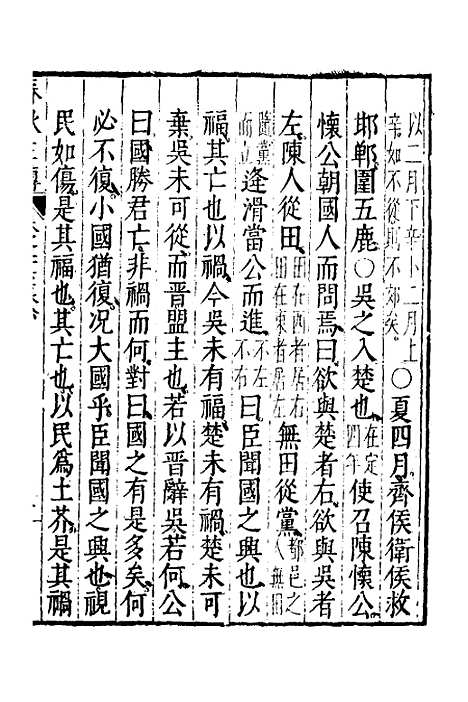 以二月下辛卜二月上辛如不從則不郊矣○夏四月齊侯衛侯救
邯鄲圍五鹿○吳之入楚也在定四年使召陳懷公
懷公朝國人而問焉曰欲與楚者右欲與吳者
左陳人從田田在西者居右田在東者居左無田從黨都邑之人無田
隨黨而立逢滑當公而進不左不右曰臣聞國之興也以
福其亡也以禍今吳未有福楚未有禍楚未可
棄吳未可從而晉盟主也若以晉辭吳若何公
曰國勝君亡非禍而何對曰國之有是多矣何
必不復小國猶復况大國乎臣聞國之興也視
民如傷是其福也其亡也以民爲土芥是其禍